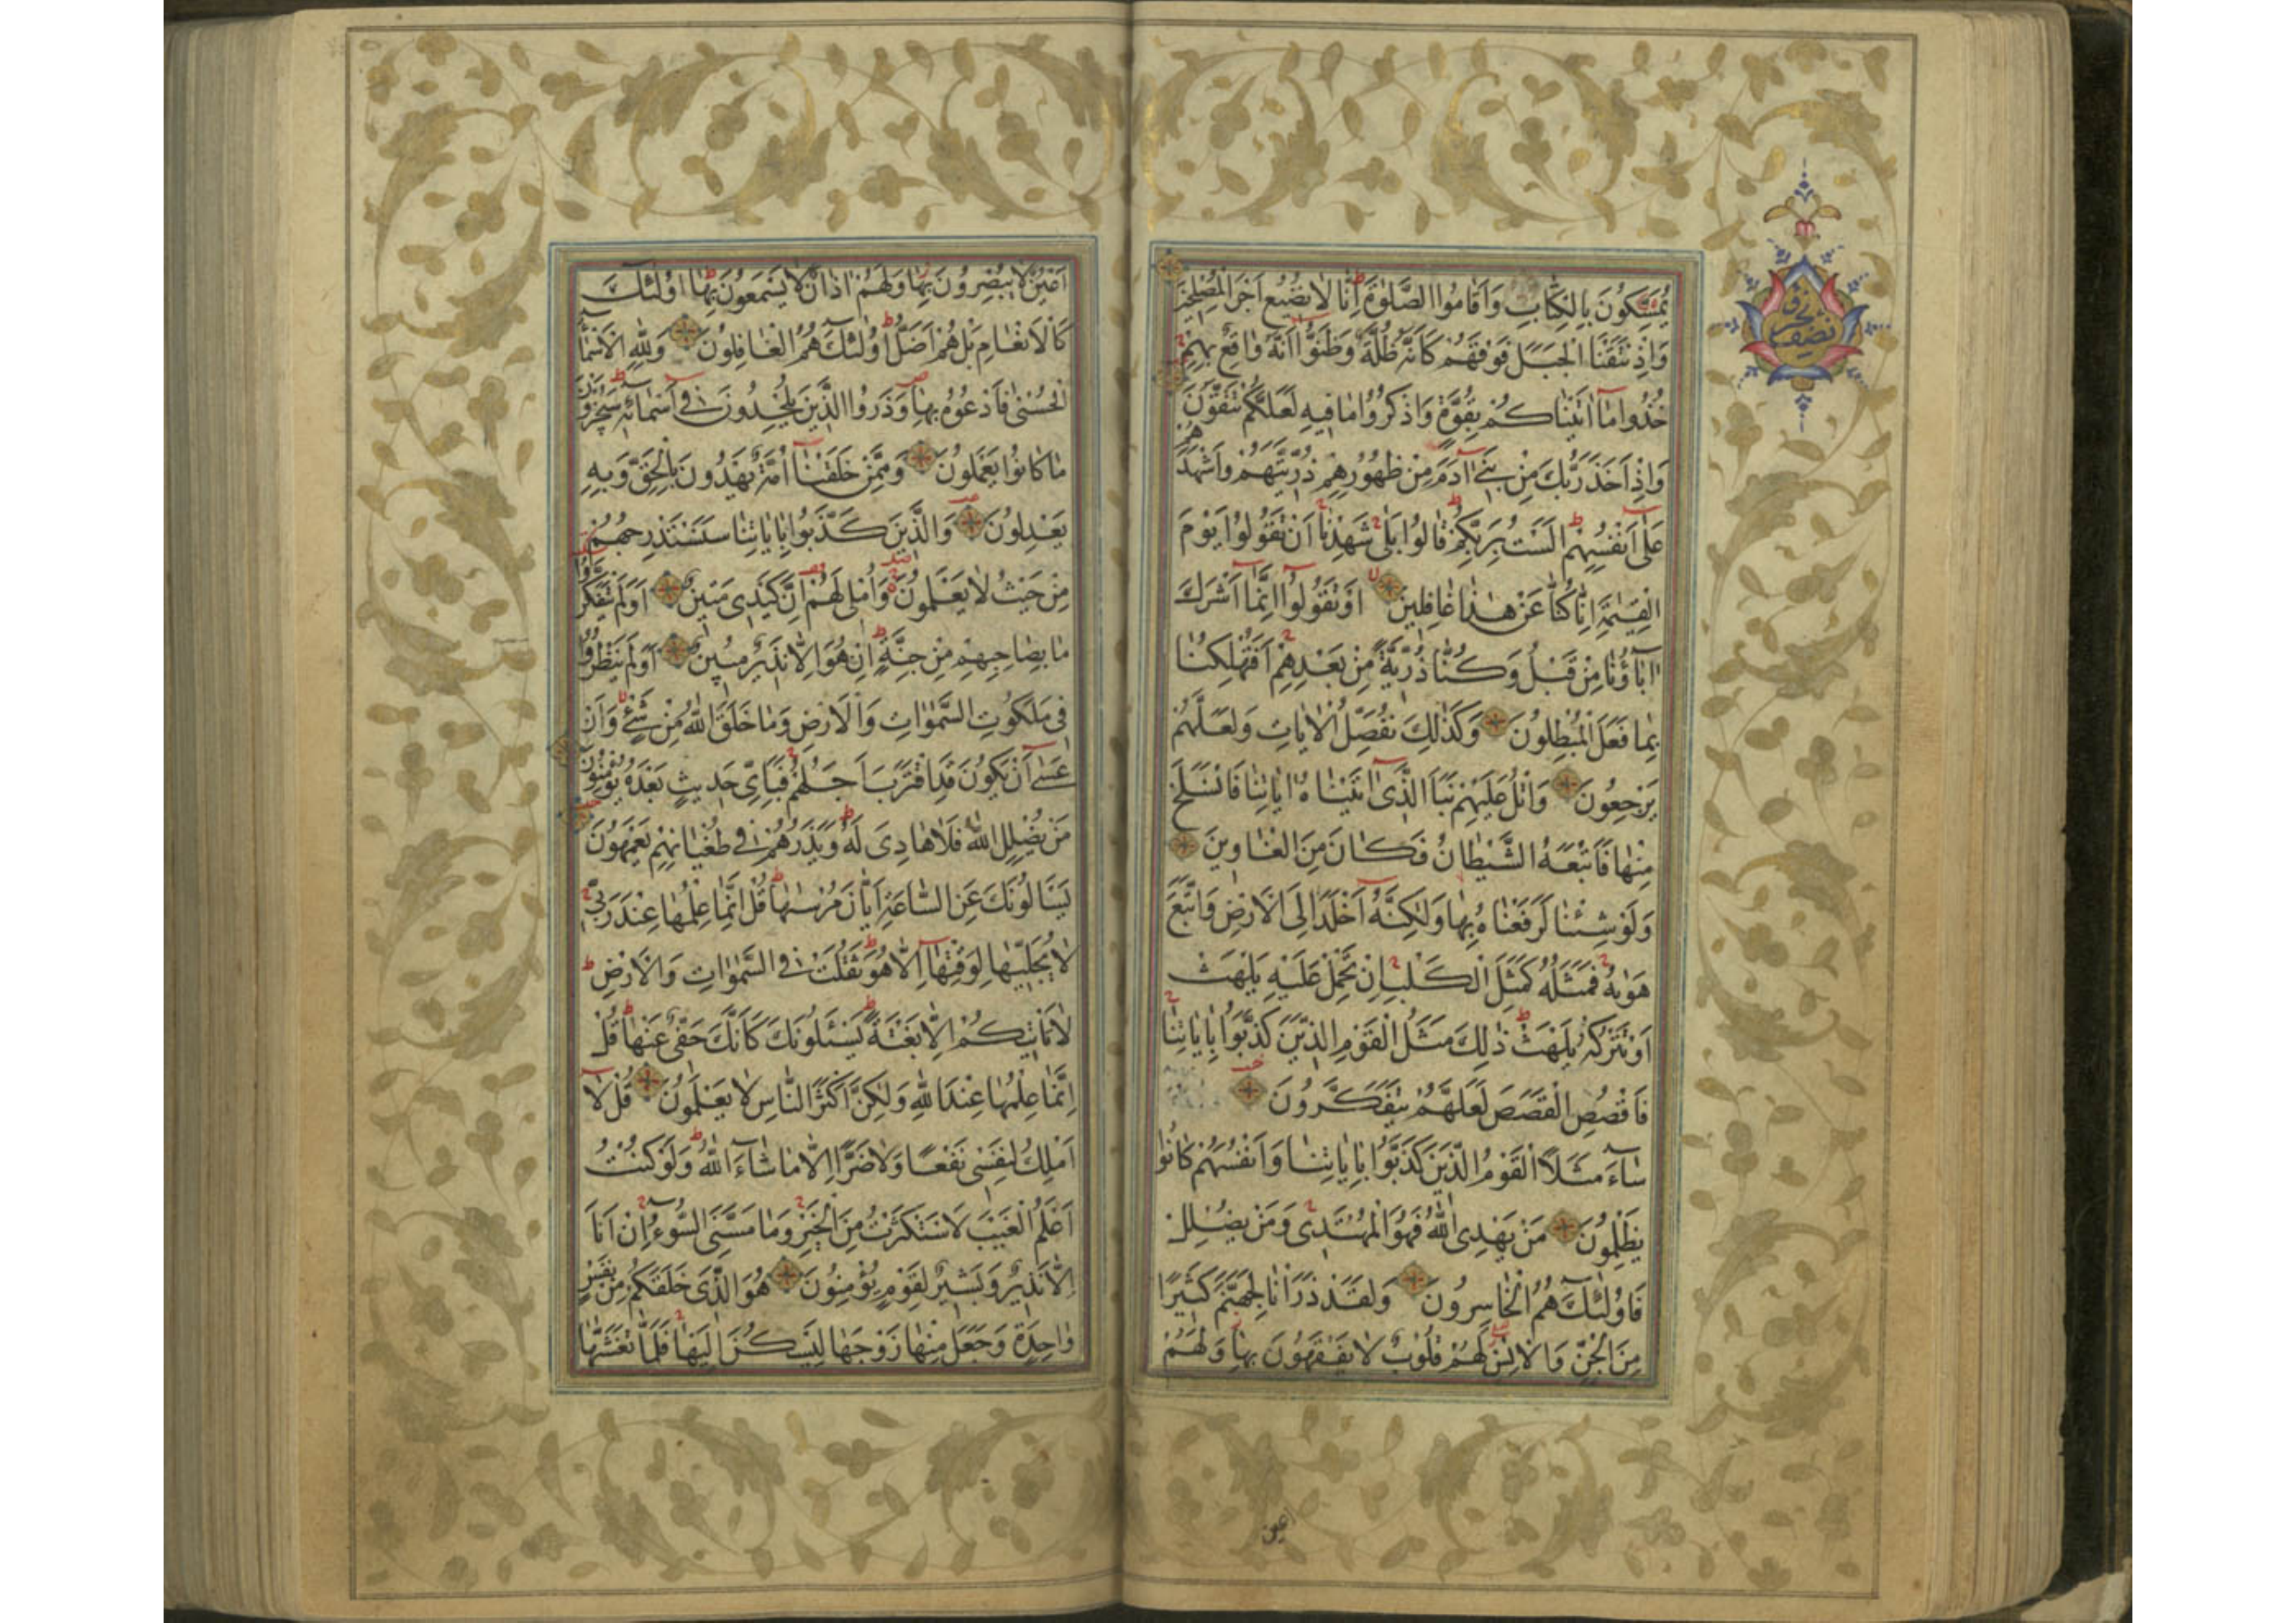 يُمَسِّكُونَ بِالْكِتَابِ وَاَقَامُوا الصَّلٰوةَ اِنَّا لَا نُضِيعُ اَجْرَ الْمُصْلِحِينَ
وَاِذْ نَتَقْنَا الْجَبَلَ فَوْقَهُمْ كَاَنَّهُ ظُلَّةٌ وَظَنُّوا اَنَّهُ وَاقِعٌ بِهِمْ
خُذُوا مَا اٰتَيْنَاكُمْ بِقُوَّةٍ وَاذْكُرُوا مَا فِيهِ لَعَلَّكُمْ تَتَّقُونَ
وَاِذْ اَخَذَ رَبُّكَ مِنْ بَنِي اٰدَمَ مِنْ ظُهُورِهِمْ ذُرِّيَّتَهُمْ وَاَشْهَدَهُمْ
عَلٰى اَنْفُسِهِمْ اَلَسْتُ بِرَبِّكُمْ قَالُوا بَلٰى شَهِدْنَا اَنْ تَقُولُوا يَوْمَ
الْقِيٰمَةِ اِنَّا كُنَّا عَنْ هٰذَا غَافِلِينَ اَوْ تَقُولُوا اِنَّمَا اَشْرَكَ
اٰبَاؤُنَا مِنْ قَبْلُ وَكُنَّا ذُرِّيَّةً مِنْ بَعْدِهِمْ اَفَتُهْلِكُنَا
بِمَا فَعَلَ الْمُبْطِلُونَ وَكَذٰلِكَ نُفَصِّلُ الْاٰيَاتِ وَلَعَلَّهُمْ
يَرْجِعُونَ وَاتْلُ عَلَيْهِمْ نَبَاَ الَّذِي اٰتَيْنَاهُ اٰيَاتِنَا فَانْسَلَخَ
مِنْهَا فَاَتْبَعَهُ الشَّيْطَانُ فَكَانَ مِنَ الْغَاوِينَ
وَلَوْ شِئْنَا لَرَفَعْنَاهُ بِهَا وَلٰكِنَّهُ اَخْلَدَ اِلَى الْاَرْضِ وَاتَّبَعَ
هَوٰيهُ فَمَثَلُهُ كَمَثَلِ الْكَلْبِ اِنْ تَحْمِلْ عَلَيْهِ يَلْهَثْ
اَوْ تَتْرُكْهُ يَلْهَثْ ذٰلِكَ مَثَلُ الْقَوْمِ الَّذِينَ كَذَّبُوا بِاٰيَاتِنَا
فَاقْصُصِ الْقَصَصَ لَعَلَّهُمْ يَتَفَكَّرُونَ
سَاءَ مَثَلًا الْقَوْمُ الَّذِينَ كَذَّبُوا بِاٰيَاتِنَا وَاَنْفُسَهُمْ كَانُوا
يَظْلِمُونَ مَنْ يَهْدِي اللّٰهُ فَهُوَ الْمُهْتَدِي وَمَنْ يُضْلِلْ
فَاُولٰئِكَ هُمُ الْخَاسِرُونَ وَلَقَدْ ذَرَاْنَا لِجَهَنَّمَ كَثِيرًا
مِنَ الْجِنِّ وَالْاِنْسِ لَهُمْ قُلُوبٌ لَا يَفْقَهُونَ بِهَا وَلَهُمْ
اَعْيُنٌ لَا يُبْصِرُونَ بِهَا وَلَهُمْ اٰذَانٌ لَا يَسْمَعُونَ بِهَا اُولٰئِكَ
كَالْاَنْعَامِ بَلْ هُمْ اَضَلُّ اُولٰئِكَ هُمُ الْغَافِلُونَ وَلِلّٰهِ الْاَسْمَاءُ
الْحُسْنٰى فَادْعُوهُ بِهَا وَذَرُوا الَّذِينَ يُلْحِدُونَ فِي اَسْمَائِهِ سَيُجْزَوْنَ
مَا كَانُوا يَعْمَلُونَ وَمِمَّنْ خَلَقْنَا اُمَّةٌ يَهْدُونَ بِالْحَقِّ وَبِهِ
يَعْدِلُونَ وَالَّذِينَ كَذَّبُوا بِاٰيَاتِنَا سَنَسْتَدْرِجُهُمْ
مِنْ حَيْثُ لَا يَعْلَمُونَ وَاُمْلِي لَهُمْ اِنَّ كَيْدِي مَتِينٌ اَوَلَمْ يَتَفَكَّرُوا
مَا بِصَاحِبِهِمْ مِنْ جِنَّةٍ اِنْ هُوَ اِلَّا نَذِيرٌ مُبِينٌ اَوَلَمْ يَنْظُرُوا
فِي مَلَكُوتِ السَّمٰوَاتِ وَالْاَرْضِ وَمَا خَلَقَ اللّٰهُ مِنْ شَيْءٍ وَاَنْ
عَسٰى اَنْ يَكُونَ قَدِ اقْتَرَبَ اَجَلُهُمْ فَبِاَيِّ حَدِيثٍ بَعْدَهُ يُؤْمِنُونَ
مَنْ يُضْلِلِ اللّٰهُ فَلَا هَادِيَ لَهُ وَيَذَرُهُمْ فِي طُغْيَانِهِمْ يَعْمَهُونَ
يَسْاَلُونَكَ عَنِ السَّاعَةِ اَيَّانَ مُرْسٰيهَا قُلْ اِنَّمَا عِلْمُهَا عِنْدَ رَبِّي
لَا يُجَلِّيهَا لِوَقْتِهَا اِلَّا هُوَ ثَقُلَتْ فِي السَّمٰوَاتِ وَالْاَرْضِ
لَا تَاْتِيكُمْ اِلَّا بَغْتَةً يَسْئَلُونَكَ كَاَنَّكَ حَفِيٌّ عَنْهَا قُلْ
اِنَّمَا عِلْمُهَا عِنْدَ اللّٰهِ وَلٰكِنَّ اَكْثَرَ النَّاسِ لَا يَعْلَمُونَ قُلْ لَا
اَمْلِكُ لِنَفْسِي نَفْعًا وَلَا ضَرًّا اِلَّا مَا شَاءَ اللّٰهُ وَلَوْ كُنْتُ
اَعْلَمُ الْغَيْبَ لَاسْتَكْثَرْتُ مِنَ الْخَيْرِ وَمَا مَسَّنِيَ السُّوءُ اِنْ اَنَا
اِلَّا نَذِيرٌ وَبَشِيرٌ لِقَوْمٍ يُؤْمِنُونَ هُوَ الَّذِي خَلَقَكُمْ مِنْ نَفْسٍ
وَاحِدَةٍ وَجَعَلَ مِنْهَا زَوْجَهَا لِيَسْكُنَ اِلَيْهَا فَلَمَّا تَغَشّٰيهَا